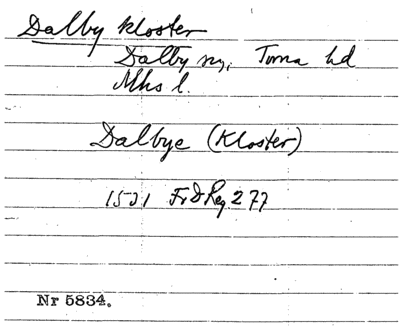 Dalby kloster
Dalby sn, Torna hd
Mhs l.
Dalbye (Kloster)
1521 Fr d Reg 277
Nr 5834.